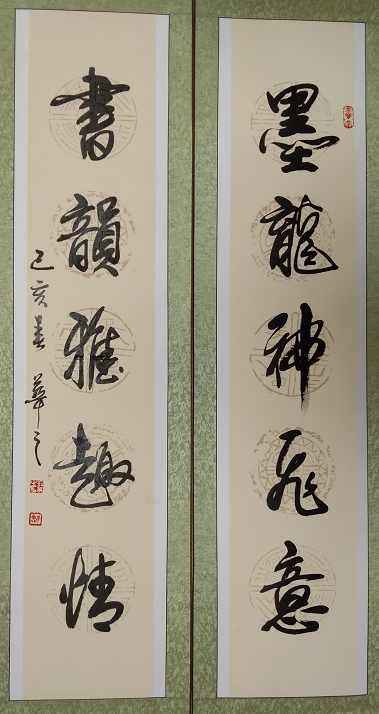 墨龍神飛意
書韻雅趣情
己亥春 華之